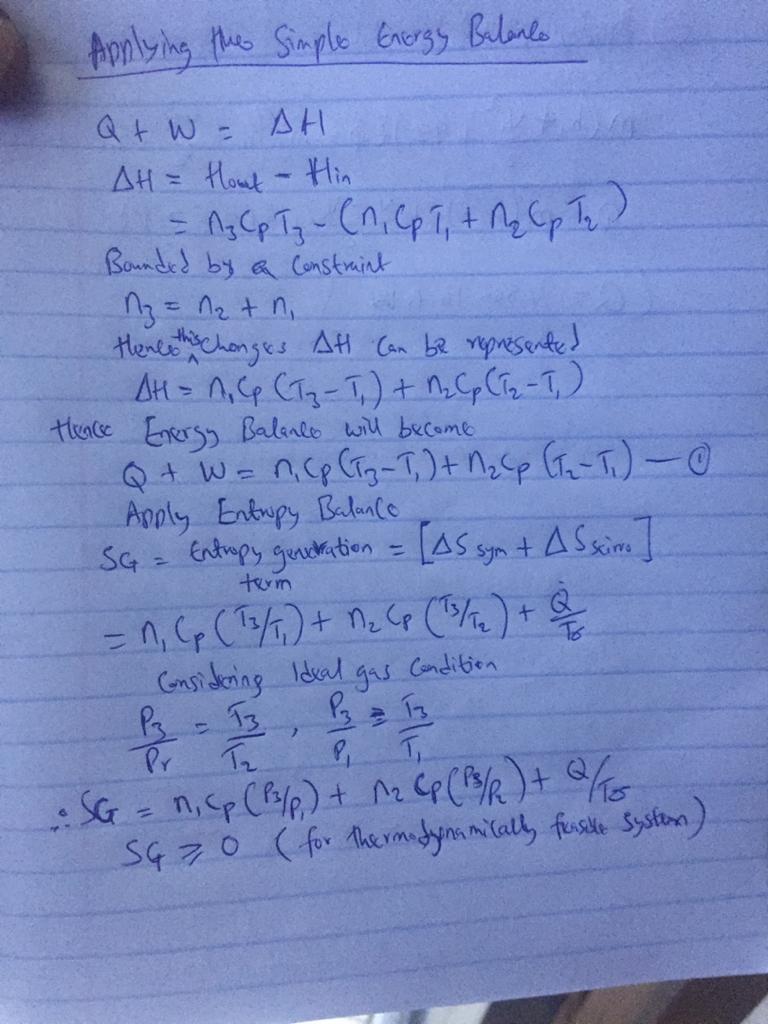 Applying the Simple Energy Balance
Q + W = ΔH
ΔH = Hout - Hin
= n₃CpT₃ - (n₁CpT₁ + n₂CpT₂)
Bounded by a Constraint
n₃ = n₂ + n₁
Hence this changes ΔH Can be represented
ΔH = n₁Cp (T₃-T₁) + n₂Cp(T₂-T₁)
Hence Energy Balance will become
Q + W = n₁Cp(T₃-T₁) + n₂Cp (T₂-T₁) — ①
Apply Entropy Balance
SG = Entropy generation term = [ΔS sym + ΔS]
= n₁Cp (T₃/T₁) + n₂Cp (T₃/T₂) + Q̇/Tσ
Considering Ideal gas Condition
P₃/Pr = T₃/T₂, P₃/P₁ = T₃/T₁
∴ SG = n₁Cp(P₃/P₁) + n₂Cp(P₃/P₂) + Q/Tσ
SG ⩾ 0 (for thermodynamically feasible system)